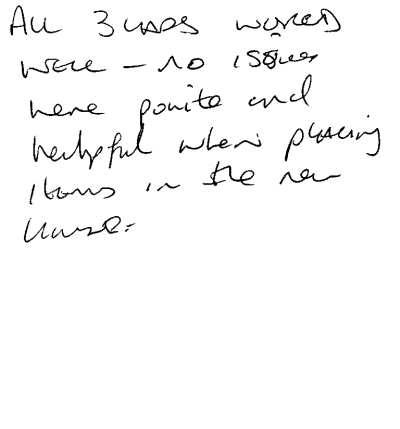 All 3 lads worked
well - no issues
were polite and
helpful when placing
items in the new
house.